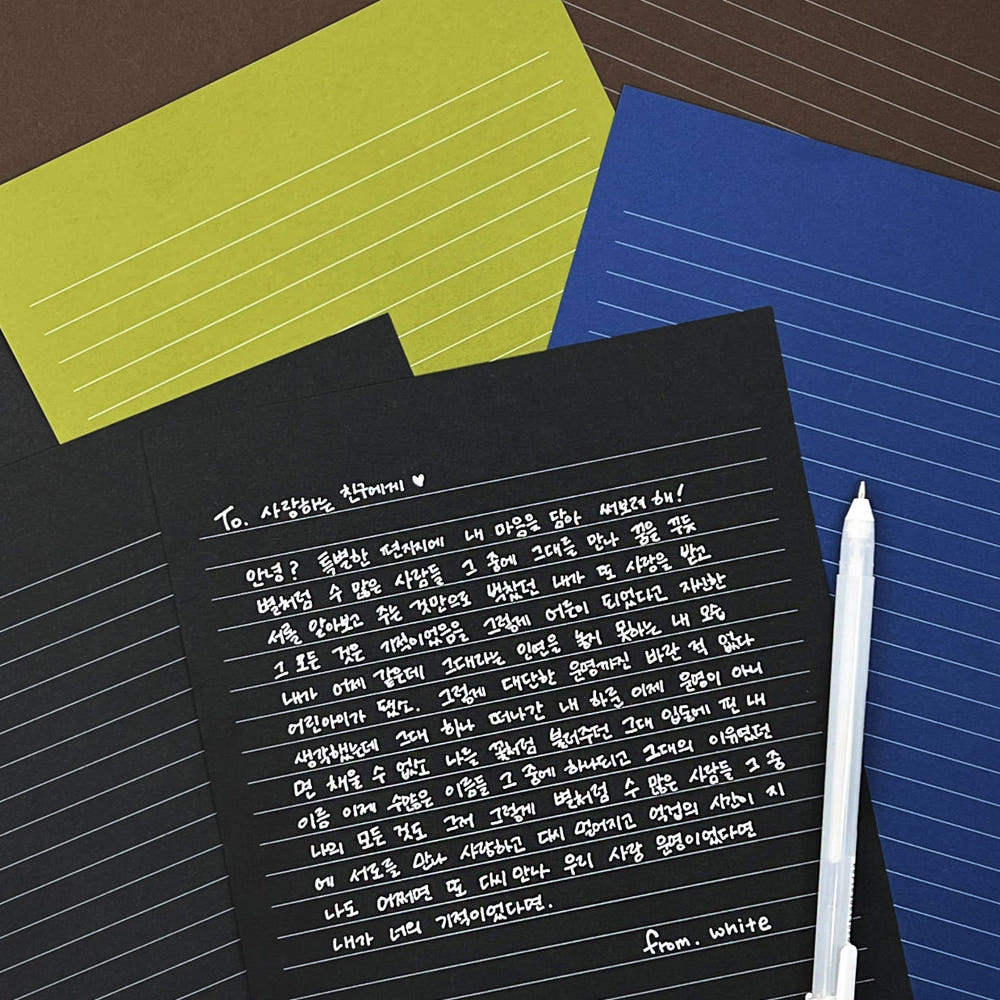 To. 사랑하는 친구에게 ♥
안녕? 특별한 편지지에 내 마음을 담아 써보려 해!
별처럼 수 많은 사람들 그 중에 그대를 만나 꿈을 꾸듯
서롤 알아보고 주는 것만으로 벅찼던 내가 또 사랑을 받고
그 모든 것은 기적이었음을 그렇게 어른이 되었다고 자신한
내가 어제 같은데 그대라는 인연을 놓지 못하는 내 모습
어린아이가 됐소. 그렇게 대단한 운명까진 바란 적 없다
생각했는데 그대 하나 떠나간 내 하룬 이제 운명이 아니
면 채울 수 없소 나를 꽃처럼 불러주던 그대 입술에 핀 내
이름 이제 수많은 이름들 그 중에 하나되고 그대의 이유였던
나의 모든 것도 그저 그렇게 별처럼 수 많은 사람들 그 중
에 서로를 만나 사랑하고 다시 멀어지고 억겁의 시간이 지
나도 어쩌면 또 다시 만나 우리 사랑 운명이었다면
내가 너의 기적이었다면.
from. white